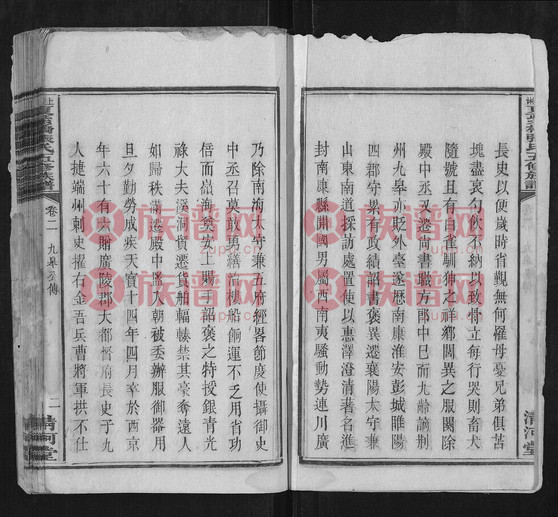 長史以便歲時省覲無何罹母憂兄弟俱苦
塊盡哀勺飲不納以致特立每行哭則畜犬
隨號且有白雀馴狎之祥鄉閭異之服闋除
殿中丞又遷尚書職方郎中已而九齡謫荆
州九皋亦貶外臺遂歷南康淮安彭城睢陽
四郡守累有政績詔書褒異遷襄陽大守兼
山東南道採訪處置使以惠澤澄清著名進
封南康縣開國男屬西南夷騷動勢連川廣
清河堂
乃除南海太守兼五府經畧節度使攝御史
中丞召募敢勇繕治樓船餉運不乏用省功
倍而嶺海奠安上賜手詔褒之特授銀青光
祿大夫溪洞貨遷貨舶輻輳禁其豪奪遠人
如歸秩滿遷殿中監大朝被委辦服御器用
旦夕勤勞成疾天寶十四年四月卒於西京
年六十有六贈廣陵郡大都督府長史子九
人捷端州刺史擢右金吾兵曹將軍拱不仕
卷二
九皋公傳
二
清河堂
族谱网